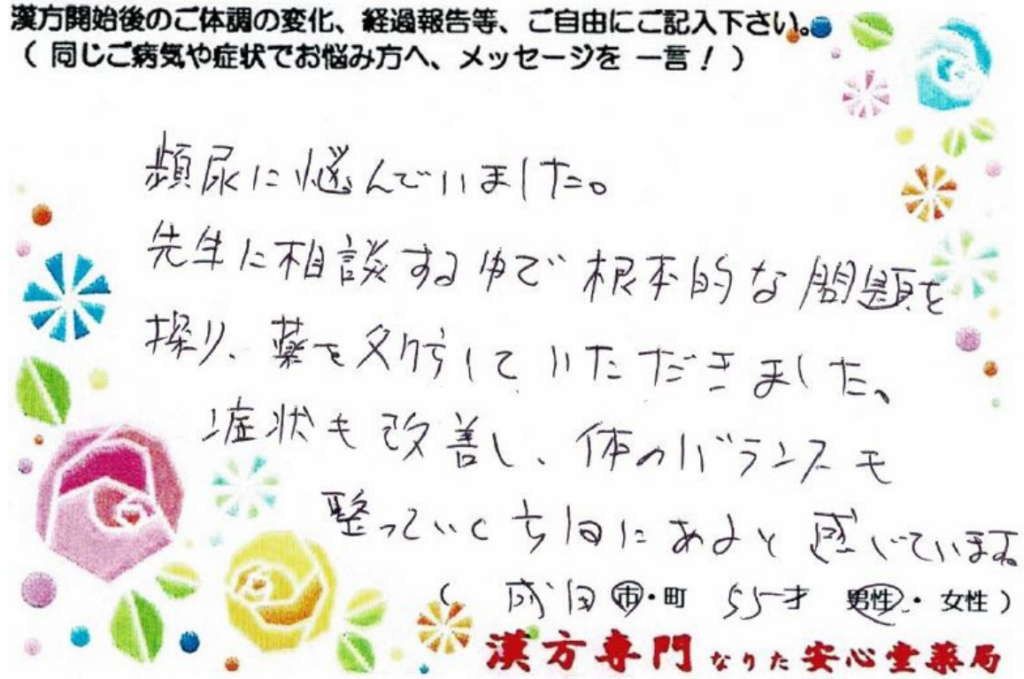 漢方開始後のご体調の変化、経過報告等、ご自由にご記入下さい。
（ 同じご病気や症状でお悩み方へ、メッセージを 一言！ ）
頻尿に悩んでいました。
先生に相談する中で根本的な問題を
探り、薬を処方していただきました。
症状も改善し、体のバランスも
整っていく方向にあると感じています。
（ 成田 市・町 55才 男性・女性 ）
漢方専門 なりた 安心堂薬局